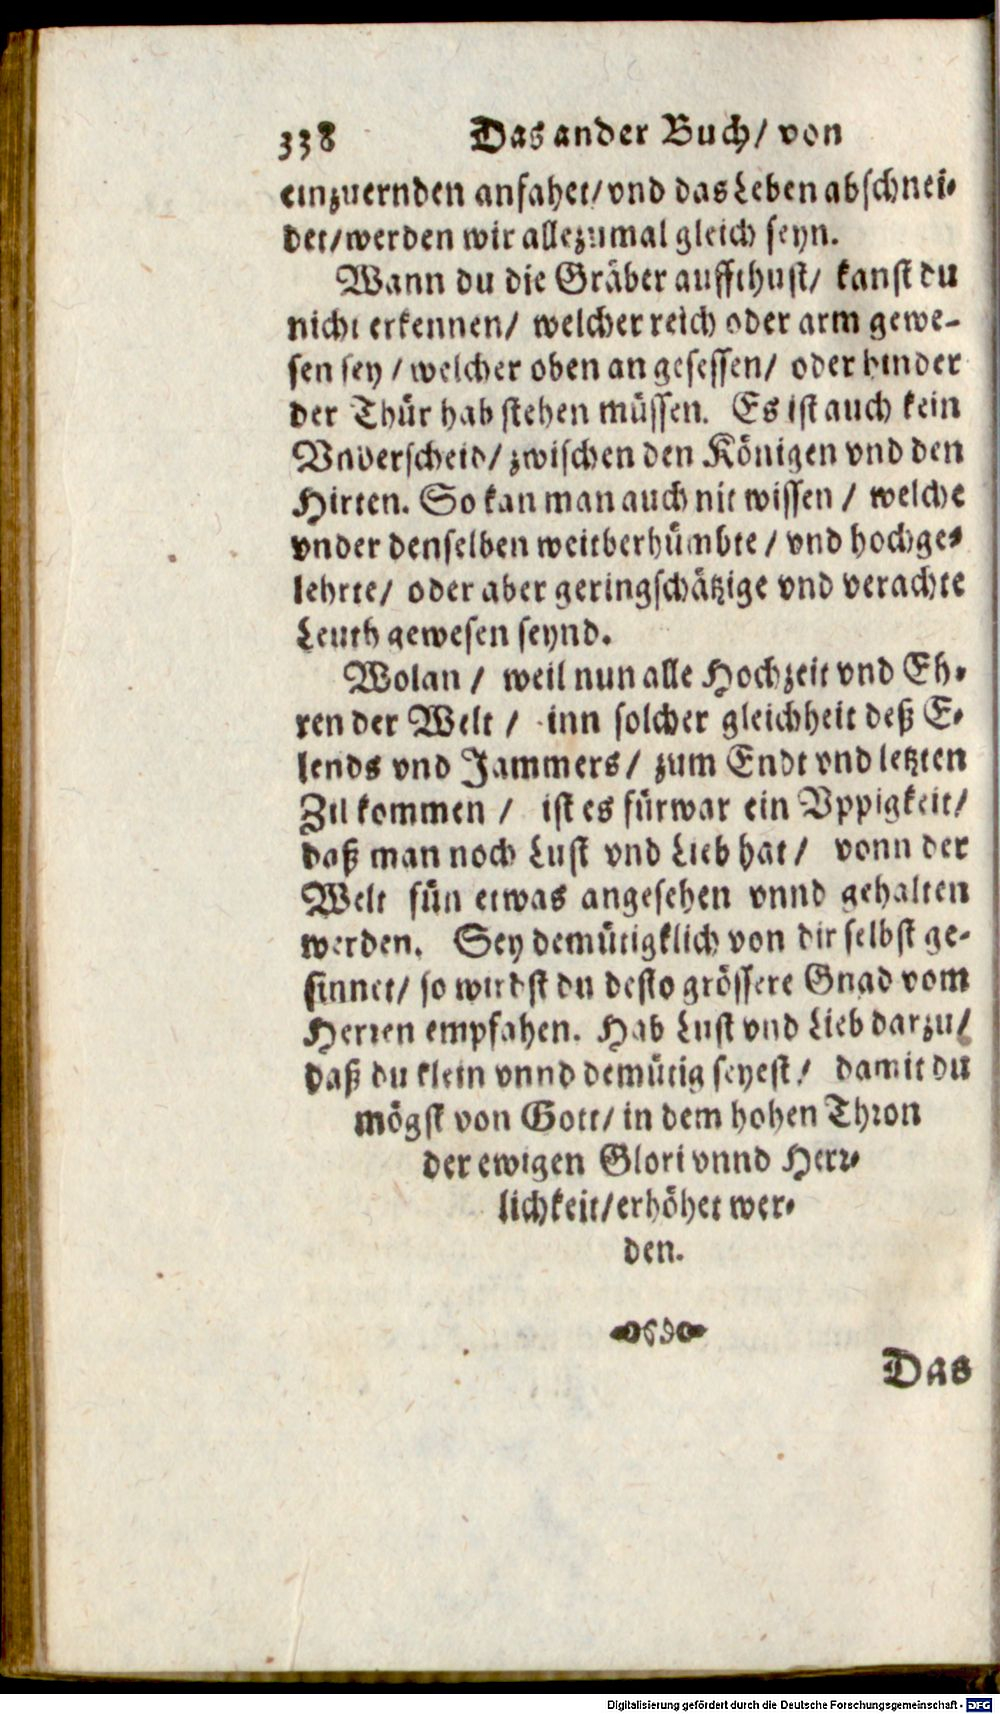 338 Das ander Buch/ von
einzuernden anfahet/ vnd das Leben abschnei-
det/ werden wir allezumal gleich seyn.
Wann du die Gräber auffthust/ kanst du
nicht erkennen/ welcher reich oder arm gewe-
sen sey / welcher oben an gesessen/ oder hinder
der Thür hab stehen müssen. Es ist auch kein
Vnderscheid/ zwischen den Königen vnd den
Hirten. So kan man auch nit wissen / welche
vnder denselben weitberhümbte / vnd hochge-
lehrte/ oder aber geringschätzige vnd verachte
Leuth gewesen seynd.
Wolan / weil nun alle Hochzeit vnd Eh-
ren der Welt / inn solcher gleichheit deß E-
lends vnd Jammers/ zum Endt vnd letzten
Zil kommen / ist es fürwar ein Vppigkeit/
daß man noch Lust vnd Lieb hat / vonn der
Welt fün etwas angesehen vnnd gehalten
werden. Sey demütigklich von dir selbst ge-
sinnet/ so wirdst du desto grössere Gnad vom
Herren empfahen. Hab Lust vnd Lieb darzu/
daß du klein vnnd demütig seyest / damit du
mögst von Gott/ in dem hohen Thron
der ewigen Glori vnnd Herr-
lichkeit/ erhöhet wer-
den.
Das
Digitalisierung gefördert durch die Deutsche Forschungsgemeinschaft - DFG